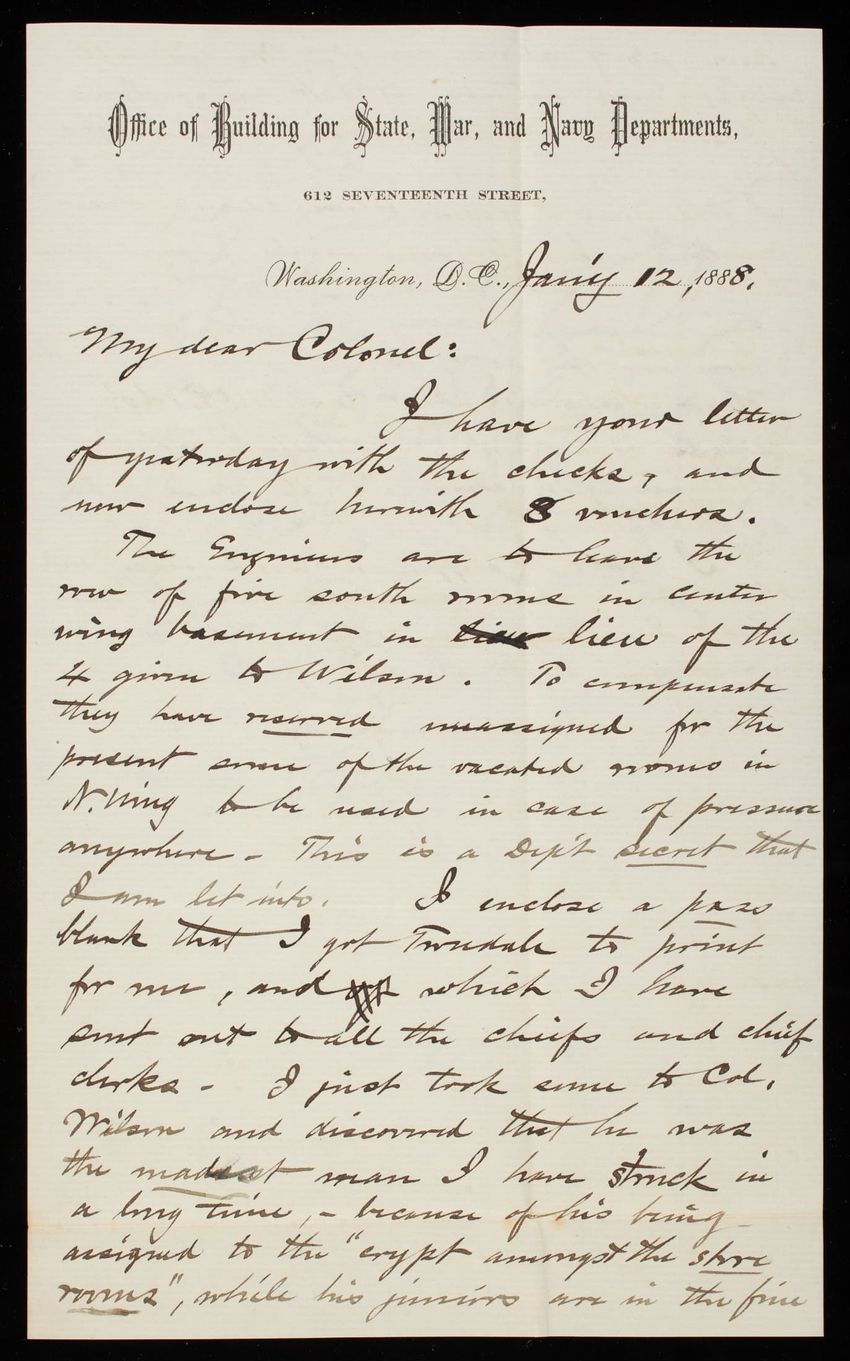 Office of Building for State, War, and Navy Departments,
612 SEVENTEENTH STREET,
Washington, D.C., Jan'y 12, 1888.
My dear Colonel:
I have your letter
of yesterday with the checks, and
now enclose herewith 8 vouchers.
The Engineers are to have the
row of five south rooms in center
wing basement in lieu of the
4 given to Wilson. To compensate
they have reserved unassigned for the
present some of the vacated rooms in
N. Wing to be used in case of pressure
anywhere - This is a Dep't secret that
I am let into. I enclose a pass
blank that I got Tweedale to print
for me, and which I have
sent out to all the chiefs and chief
clerks - I just took some to Col.
Wilson and discovered that he was
the maddest man I have struck in
a long time, - because of his being
assigned to the "crypt amongst the store
rooms", while his juniors are in the fine